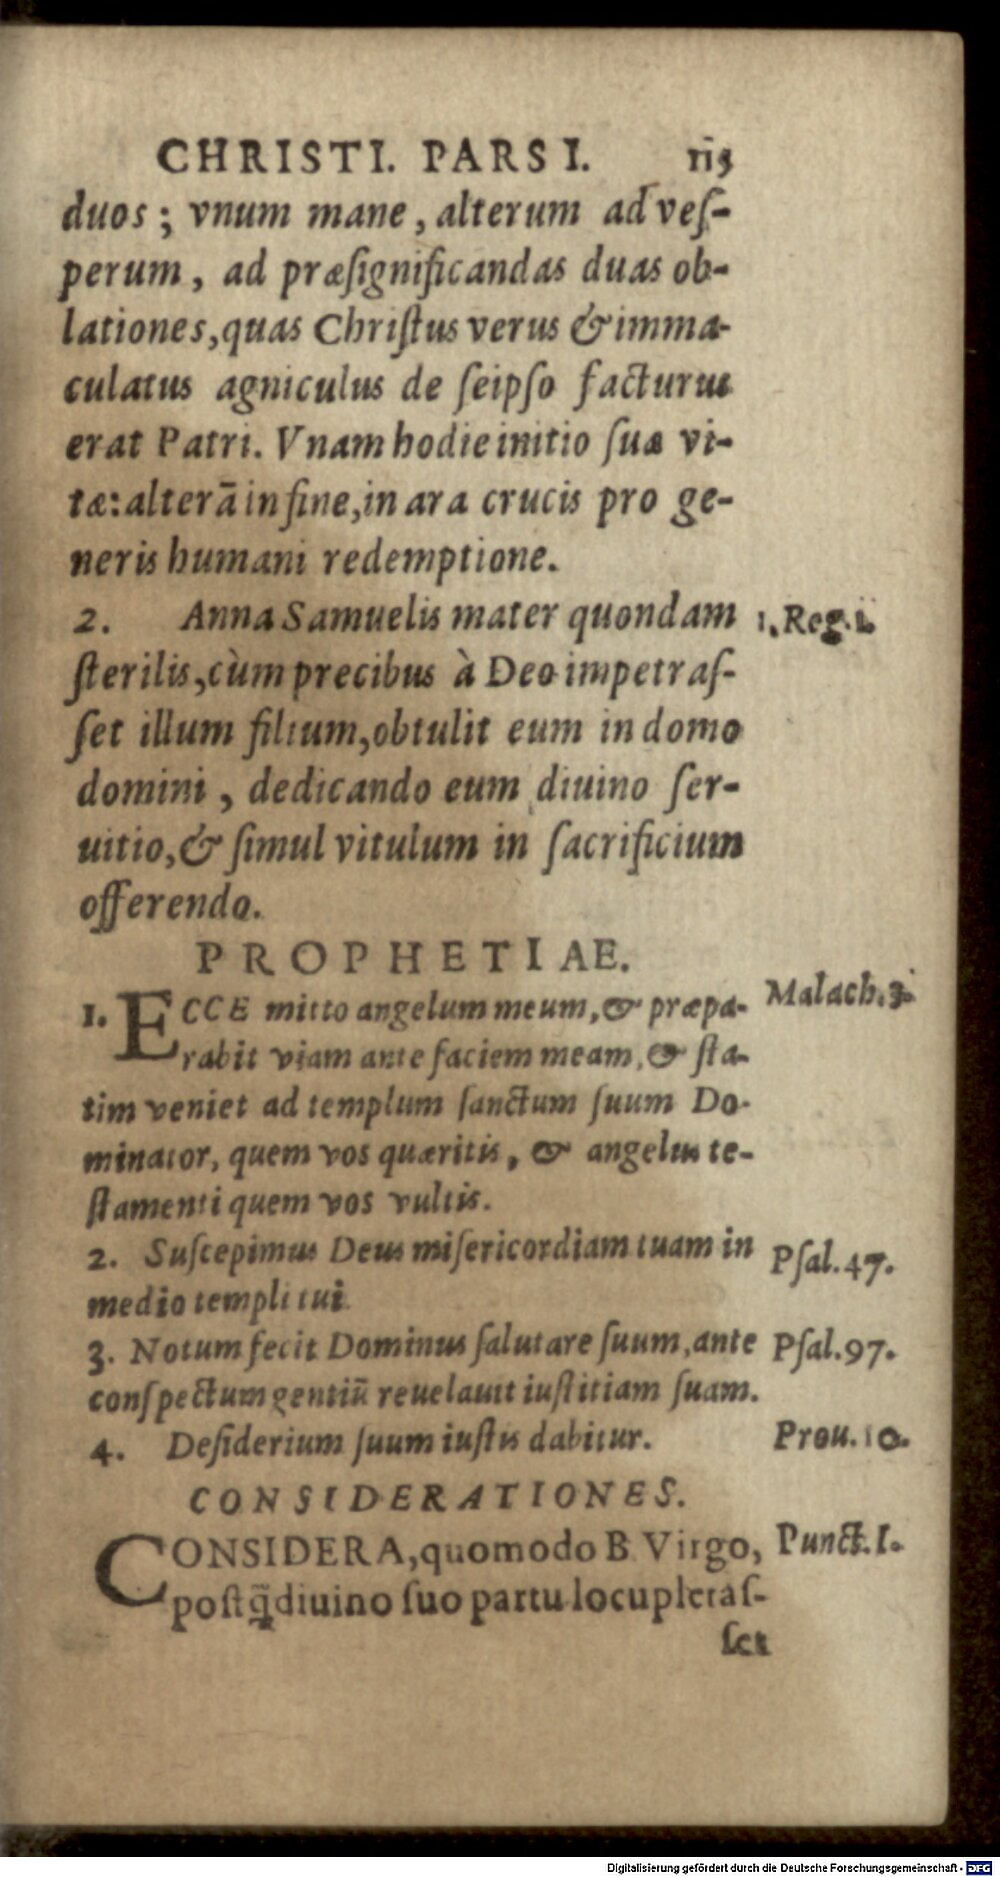 CHRISTI. PARS I. 115
duos ; vnum mane , alterum ad veſ-
perum , ad præſignificandas duas ob-
lationes, quas Chriſtus verus & imma-
culatus agniculus de ſeipſo facturus
erat Patri. Vnam hodie initio ſuæ vi-
tæ: alterā in fine, in ara crucis pro ge-
neris humani redemptione.
2. Anna Samuelis mater quondam 1. Reg. 1.
ſterilis, cùm precibus à Deo impetraſ-
ſet illum filium, obtulit eum in domo
domini , dedicando eum diuino ſer-
uitio, & ſimul vitulum in ſacrificium
offerendo.
PROPHETIAE.
1. ECCE mitto angelum meum, & præpa- Malach. 3.
rabit viam ante faciem meam, & ſta-
tim veniet ad templum ſanctum ſuum Do-
minator, quem vos quæritis, & angelus te-
ſtamenti quem vos vultis.
2. Suſcepimus Deus miſericordiam tuam in Pſal. 47.
medio templi tui.
3. Notum fecit Dominus ſalutare ſuum, ante Pſal. 97.
conſpectum gentiū reuelauit iuſtitiam ſuam.
4. Deſiderium ſuum iuſtis dabitur. Prou. 10.
CONSIDERATIONES.
CONSIDERA, quomodo B. Virgo, Punct. I.
poſtq̃ diuino ſuo partu locupletaſ-
ſet
Digitalisierung gefördert durch die Deutsche Forschungsgemeinschaft - DFG